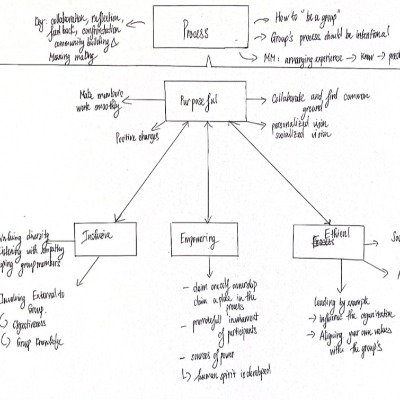 Key: collaboration, reflection,
feedback, confrontation
community building
Meaning making
Process
How to "be a group"
Group's process should be intentional
MM: arranging experience → know →
Make members
work smoothly
Positive changes
Purposeful
Collaborate and find common
ground
personalized vision
socialized vision
Inclusive
Empowering
Ethical
Process
Valuing diversity
listening with empathy
group members
Involving External to
Group.
Objectiveness
Group Knowledge
- claim oneself ownership
claim a place in the
process
- promote full involvement
of participants
- sources of power
↳ human spirit is developed
Leading by example
→ Influence the organization
→ Aligning your own values
with the group's